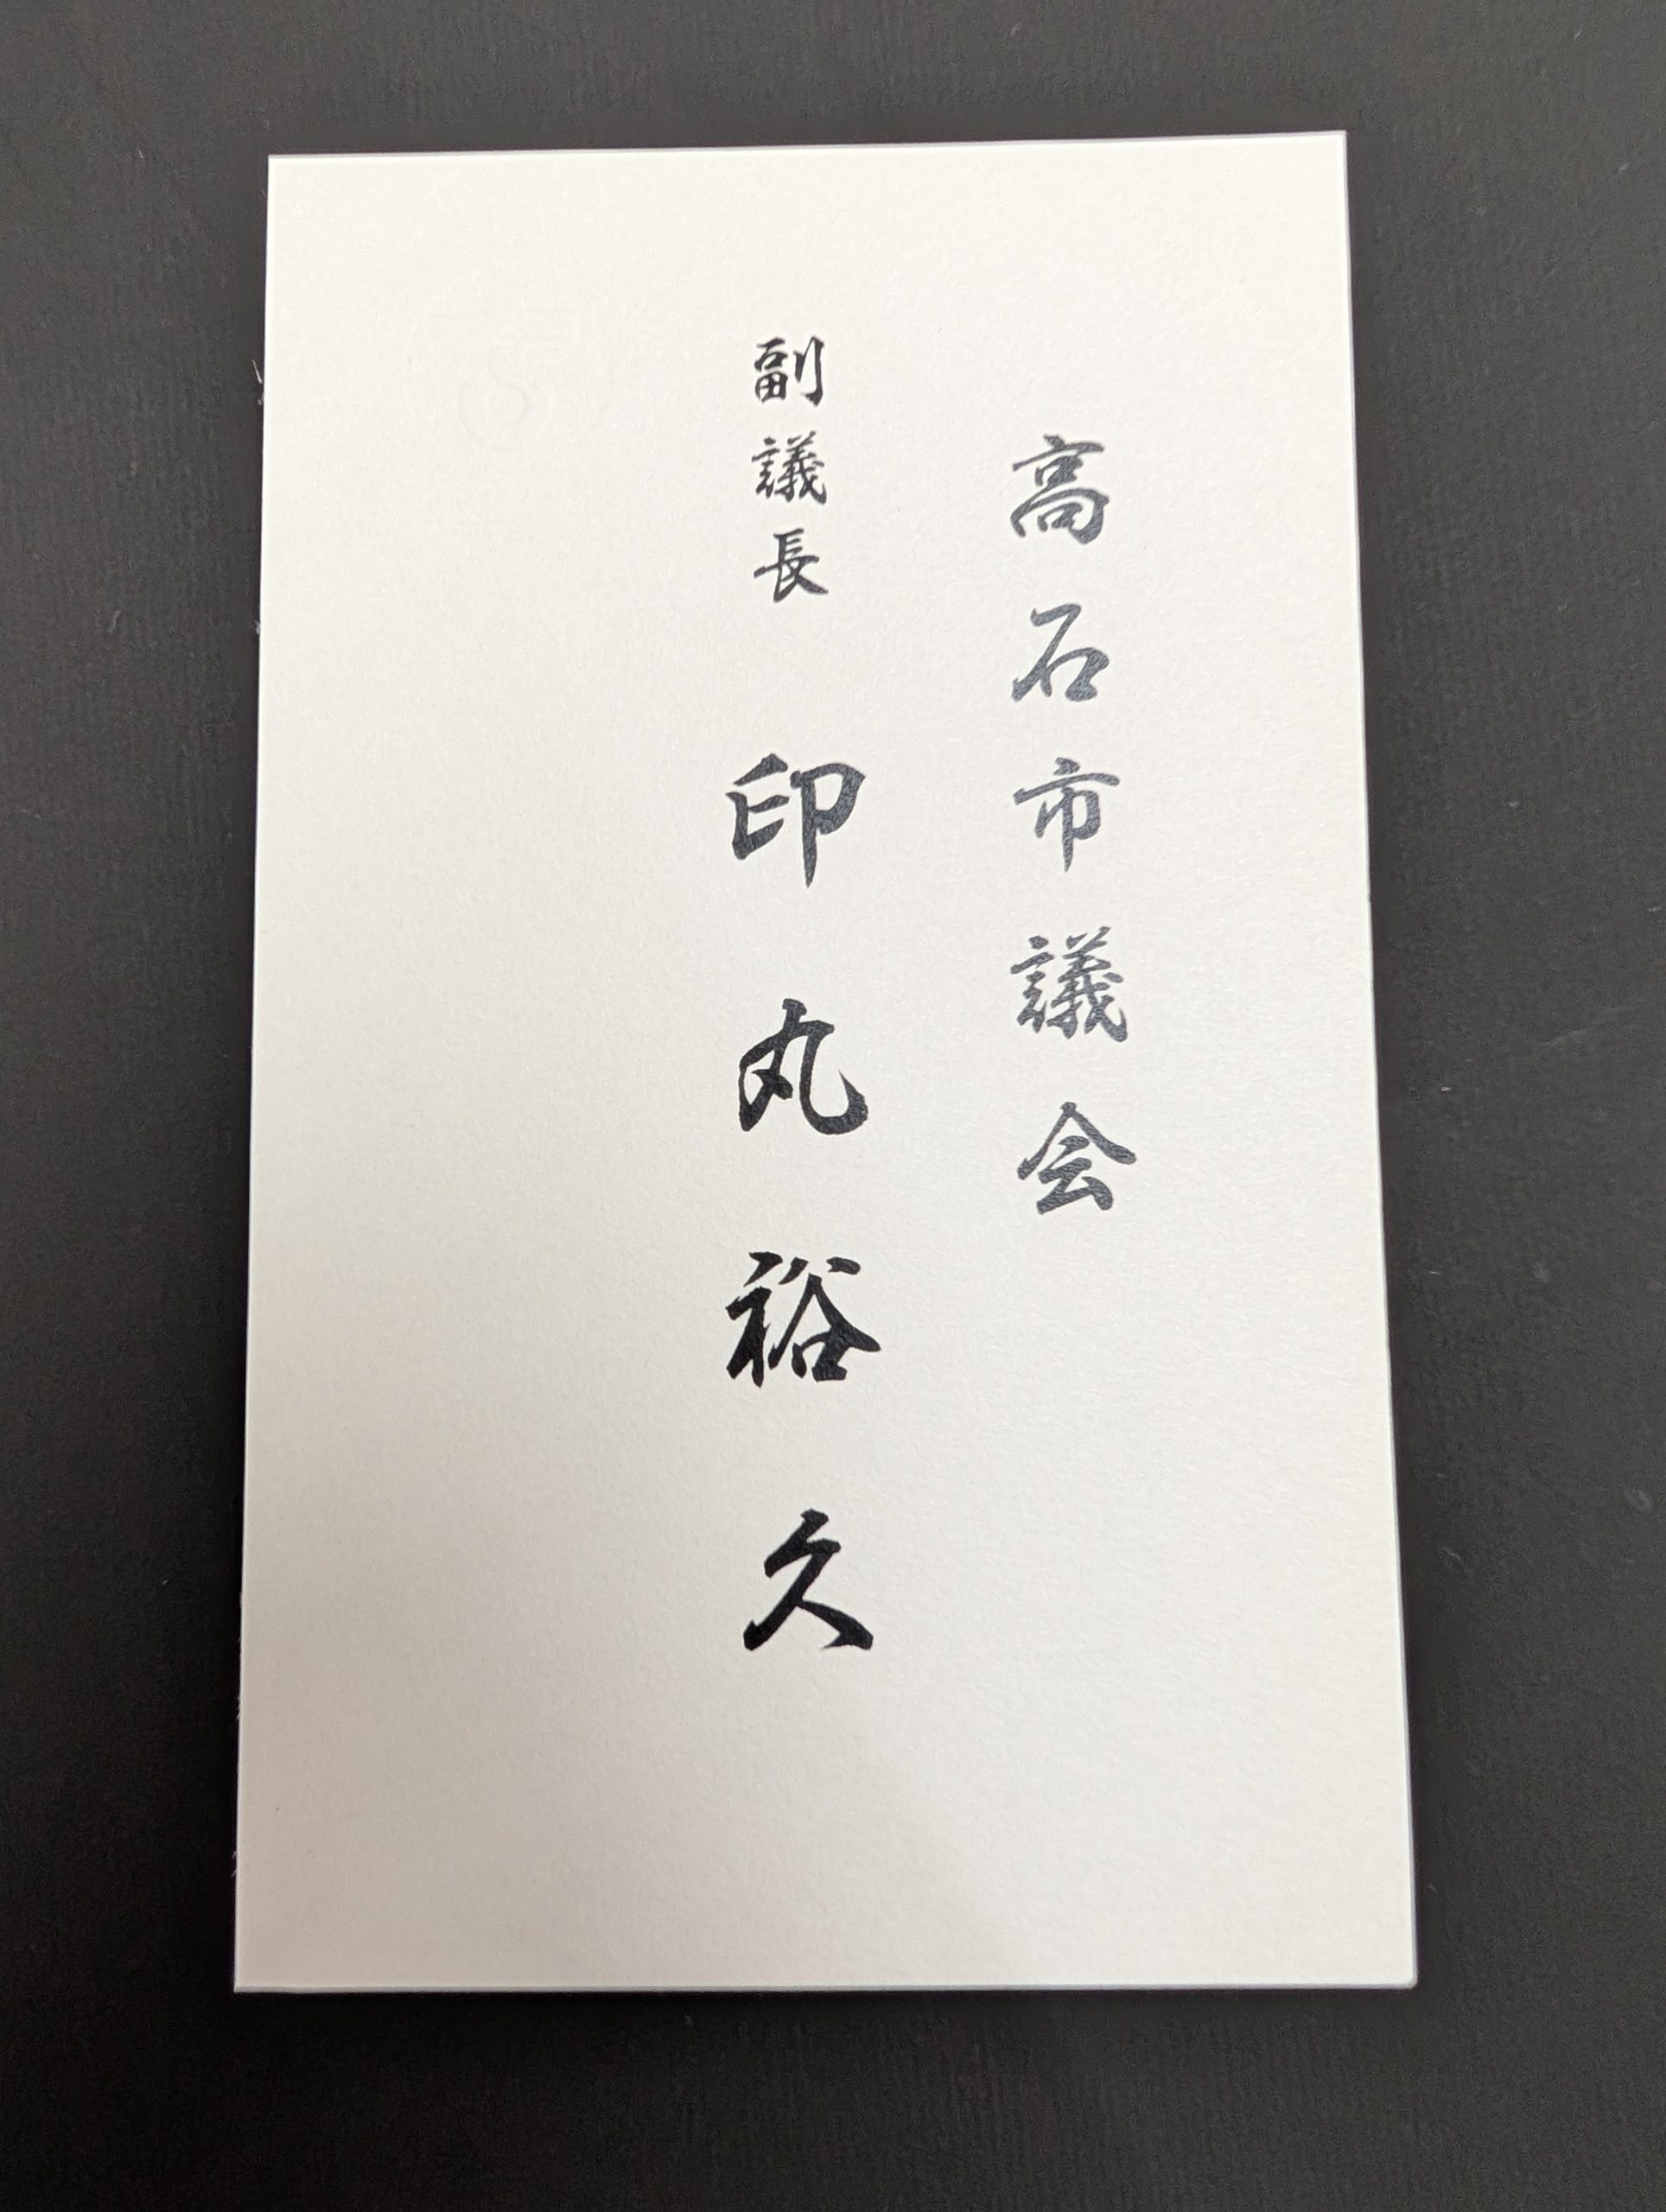 高石市議会
副議長 印丸裕久